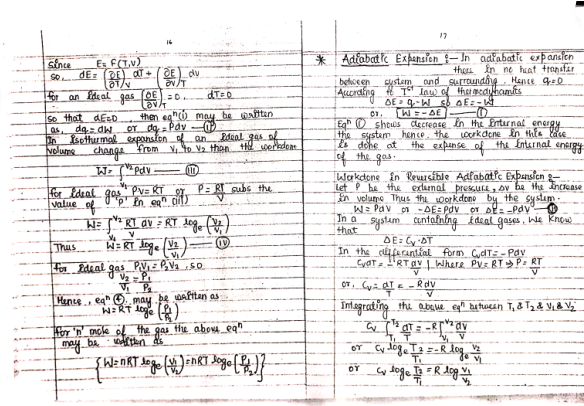 16
Since E= F(T,V)
so, dE= (∂E/∂T)V dT + (∂E/∂V)T dV
for an Ideal gas (∂E/∂V)T = 0. dT=0
so that dE=0, then eqn (i) may be written
as, dq = dW or dq = PdV — (II)
In Isothermal expansion of an Ideal gas of
volume change from V1 to V2 than the workdone
W = ∫V1V2 PdV — (III)
for Ideal gas PV= RT or P = RT/V subs the
value of 'P' in eqn (III)
W = ∫V1V2 RT/V dV = RT loge (V2/V1)
Thus W = RT loge (V2/V1) — (IV)
for Ideal gas P1V1 = P2V2 . so
V2/V1 = P1/P2
Hence, eqn (4) may be written as
W = RT loge (P1/P2)
for 'n' mole of the gas the above eqn
may be written as
{W = nRT loge (V2/V1) = nRT loge (P1/P2)}
17
* Adfabatic Expension :- In adfabatic expansion
there is no heat transfer
between system and surrounding. Hence q=0
According to Ist law of thermodynamics
ΔE = q-W so ΔE = -W
or, [W = -ΔE] — (I)
Eqn (I) shows decrease in the internal energy
the system hence, the workdone in this case
is done at the expense of the internal energy
of the gas.
Workdone in Reversible Adfabatic Expension :-
let P be the external pressure, ΔV be the increase
in volume Thus the workdone by the system.
W = PdV or -ΔE = PdV or ΔE = -PdV — (II)
In a system containing Ideal gases, We know
that
ΔE = CV·ΔT
In the differential form CVdT = -PdV
CVdT = -RT/V dV | Where PV= RT ⇒ P= RT/V
or, CV · dT/T = -R dV/V
Integrating the above eqn between T1 & T2 & V1 & V2
CV ∫T1T2 dT/T = -R ∫V1V2 dV/V
or CV loge T2/T1 = -R loge V2/V1
or CV loge T2/T1 = R log V1/V2